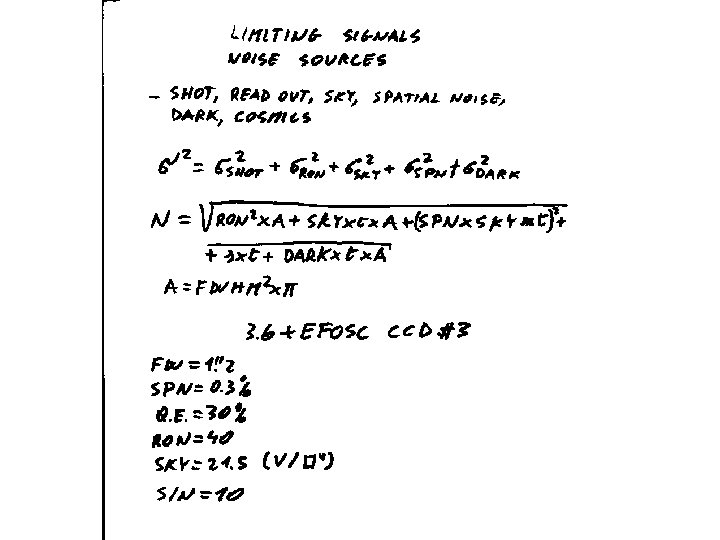 LIMITING SIGNALS
NOISE SOURCES
– SHOT, READ OUT, SKY, SPATIAL NOISE,
DARK, COSMICS
σ² = σ²SHOT + σ²RON + σ²SKY + σ²SPN + σ²DARK
N = √RON²×A + SKY×t×A + (SPN×SKY×t)²+
+ ×t + DARK×t×A
A = FWHM²×π
3.6 + EFOSC CCD #3
FW = 1."2
SPN = 0.3%
Q.E. = 30%
RON = 40
SKY = 21.5 (V/□")
S/N = 10